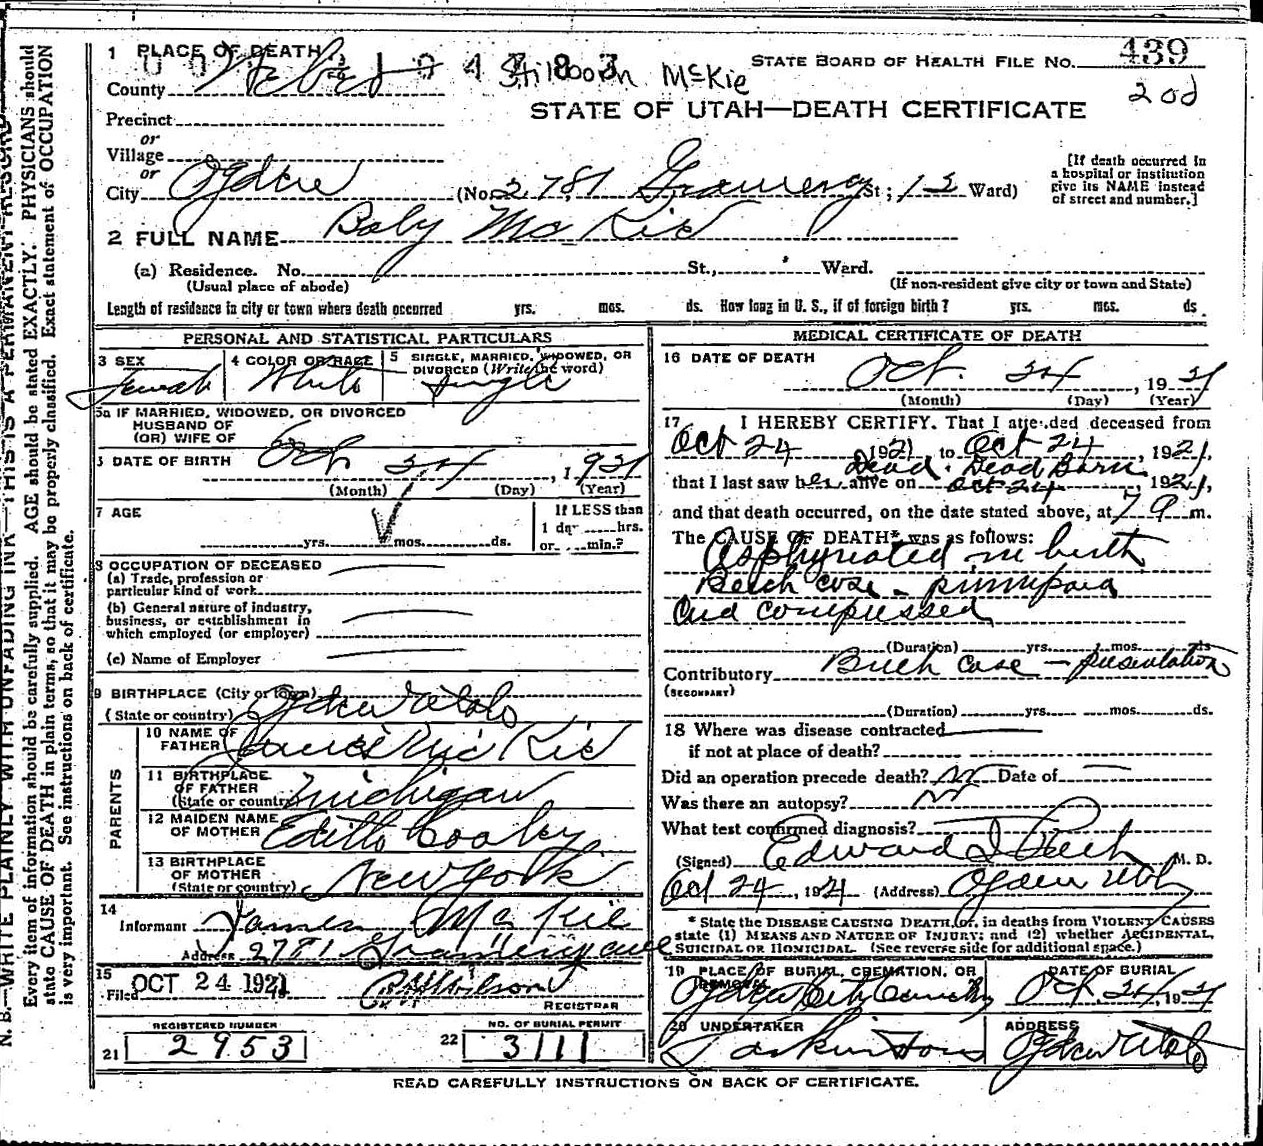 1 PLACE OF DEATH
Stillborn McKie
STATE BOARD OF HEALTH FILE NO. 439
County Weber
20d
STATE OF UTAH—DEATH CERTIFICATE
Precinct
or
Village
or
City Ogden (No. 2781 St; 12 Ward)
[If death occurred in a hospital or institution give its NAME instead of street and number.]
2 FULL NAME Baby McKie
(a) Residence. No. St., Ward.
(Usual place of abode) (If non-resident give city or town and State)
Length of residence in city or town where death occurred yrs. mos. ds. How long in U. S., if of foreign birth? yrs. mos. ds.
PERSONAL AND STATISTICAL PARTICULARS
3 SEX Female
4 COLOR OR RACE White
5 SINGLE, MARRIED, WIDOWED, OR DIVORCED (Write the word) Single
5a IF MARRIED, WIDOWED, OR DIVORCED
HUSBAND OF
(OR) WIFE OF
DATE OF BIRTH Oct 24, 1921
(Month) (Day) (Year)
7 AGE yrs. mos. ds.
If LESS than
1 day hrs.
or min.?
8 OCCUPATION OF DECEASED
(a) Trade, profession or
particular kind of work
(b) General nature of industry,
business, or establishment in
which employed (or employer)
(c) Name of Employer
9 BIRTHPLACE (City or town)
(State or country) Ogden Utah
PARENTS
10 NAME OF FATHER James McKie
11 BIRTHPLACE OF FATHER (State or country) Michigan
12 MAIDEN NAME OF MOTHER Edith
13 BIRTHPLACE OF MOTHER (State or country) New York
14 Informant James McKie
Address 2781 ave
15 Filed OCT 24 1921 Wilson
REGISTRAR
REGISTERED NUMBER
21 2953
NO. OF BURIAL PERMIT
22 3111
MEDICAL CERTIFICATE OF DEATH
16 DATE OF DEATH
Oct. 24, 1921
(Month) (Day) (Year)
17 I HEREBY CERTIFY. That I attended deceased from
Oct 24 1921 to Oct 24, 1921,
Dead. Dead Born
that I last saw her alive on Oct 24 1921,
and that death occurred, on the date stated above, at 7 a m.
The CAUSE OF DEATH* was as follows:
Asphyxiated in birth
Breech case - primipara
Cord compressed
(Duration) yrs. mos. ds
Contributory Breech case - presentation
(SECONDARY)
(Duration) yrs. mos. ds.
18 Where was disease contracted
if not at place of death?
Did an operation precede death? no Date of
Was there an autopsy? no
What test confirmed diagnosis?
(Signed) Edward I Rich M. D.
Oct 24, 1921 (Address) Ogden Utah
* State the DISEASE CAUSING DEATH, or, in deaths from VIOLENT CAUSES
state (1) MEANS AND NATURE OF INJURY; and (2) whether ACCIDENTAL,
SUICIDAL OR HOMICIDAL. (See reverse side for additional space.)
19 PLACE OF BURIAL, CREMATION, OR REMOVAL
Ogden City Cemetery
DATE OF BURIAL
Oct. 24, 1921
20 UNDERTAKER
Larkin & Sons
ADDRESS
Ogden Utah
READ CAREFULLY INSTRUCTIONS ON BACK OF CERTIFICATE.
N. B.—WRITE PLAINLY WITH UNFADING INK—THIS IS A PERMANENT RECORD
Every item of information should be carefully supplied. AGE should be stated EXACTLY. PHYSICIANS should
state CAUSE OF DEATH in plain terms, so that it may be properly classified. Exact statement of OCCUPATION
is very important. See instructions on back of certificate.